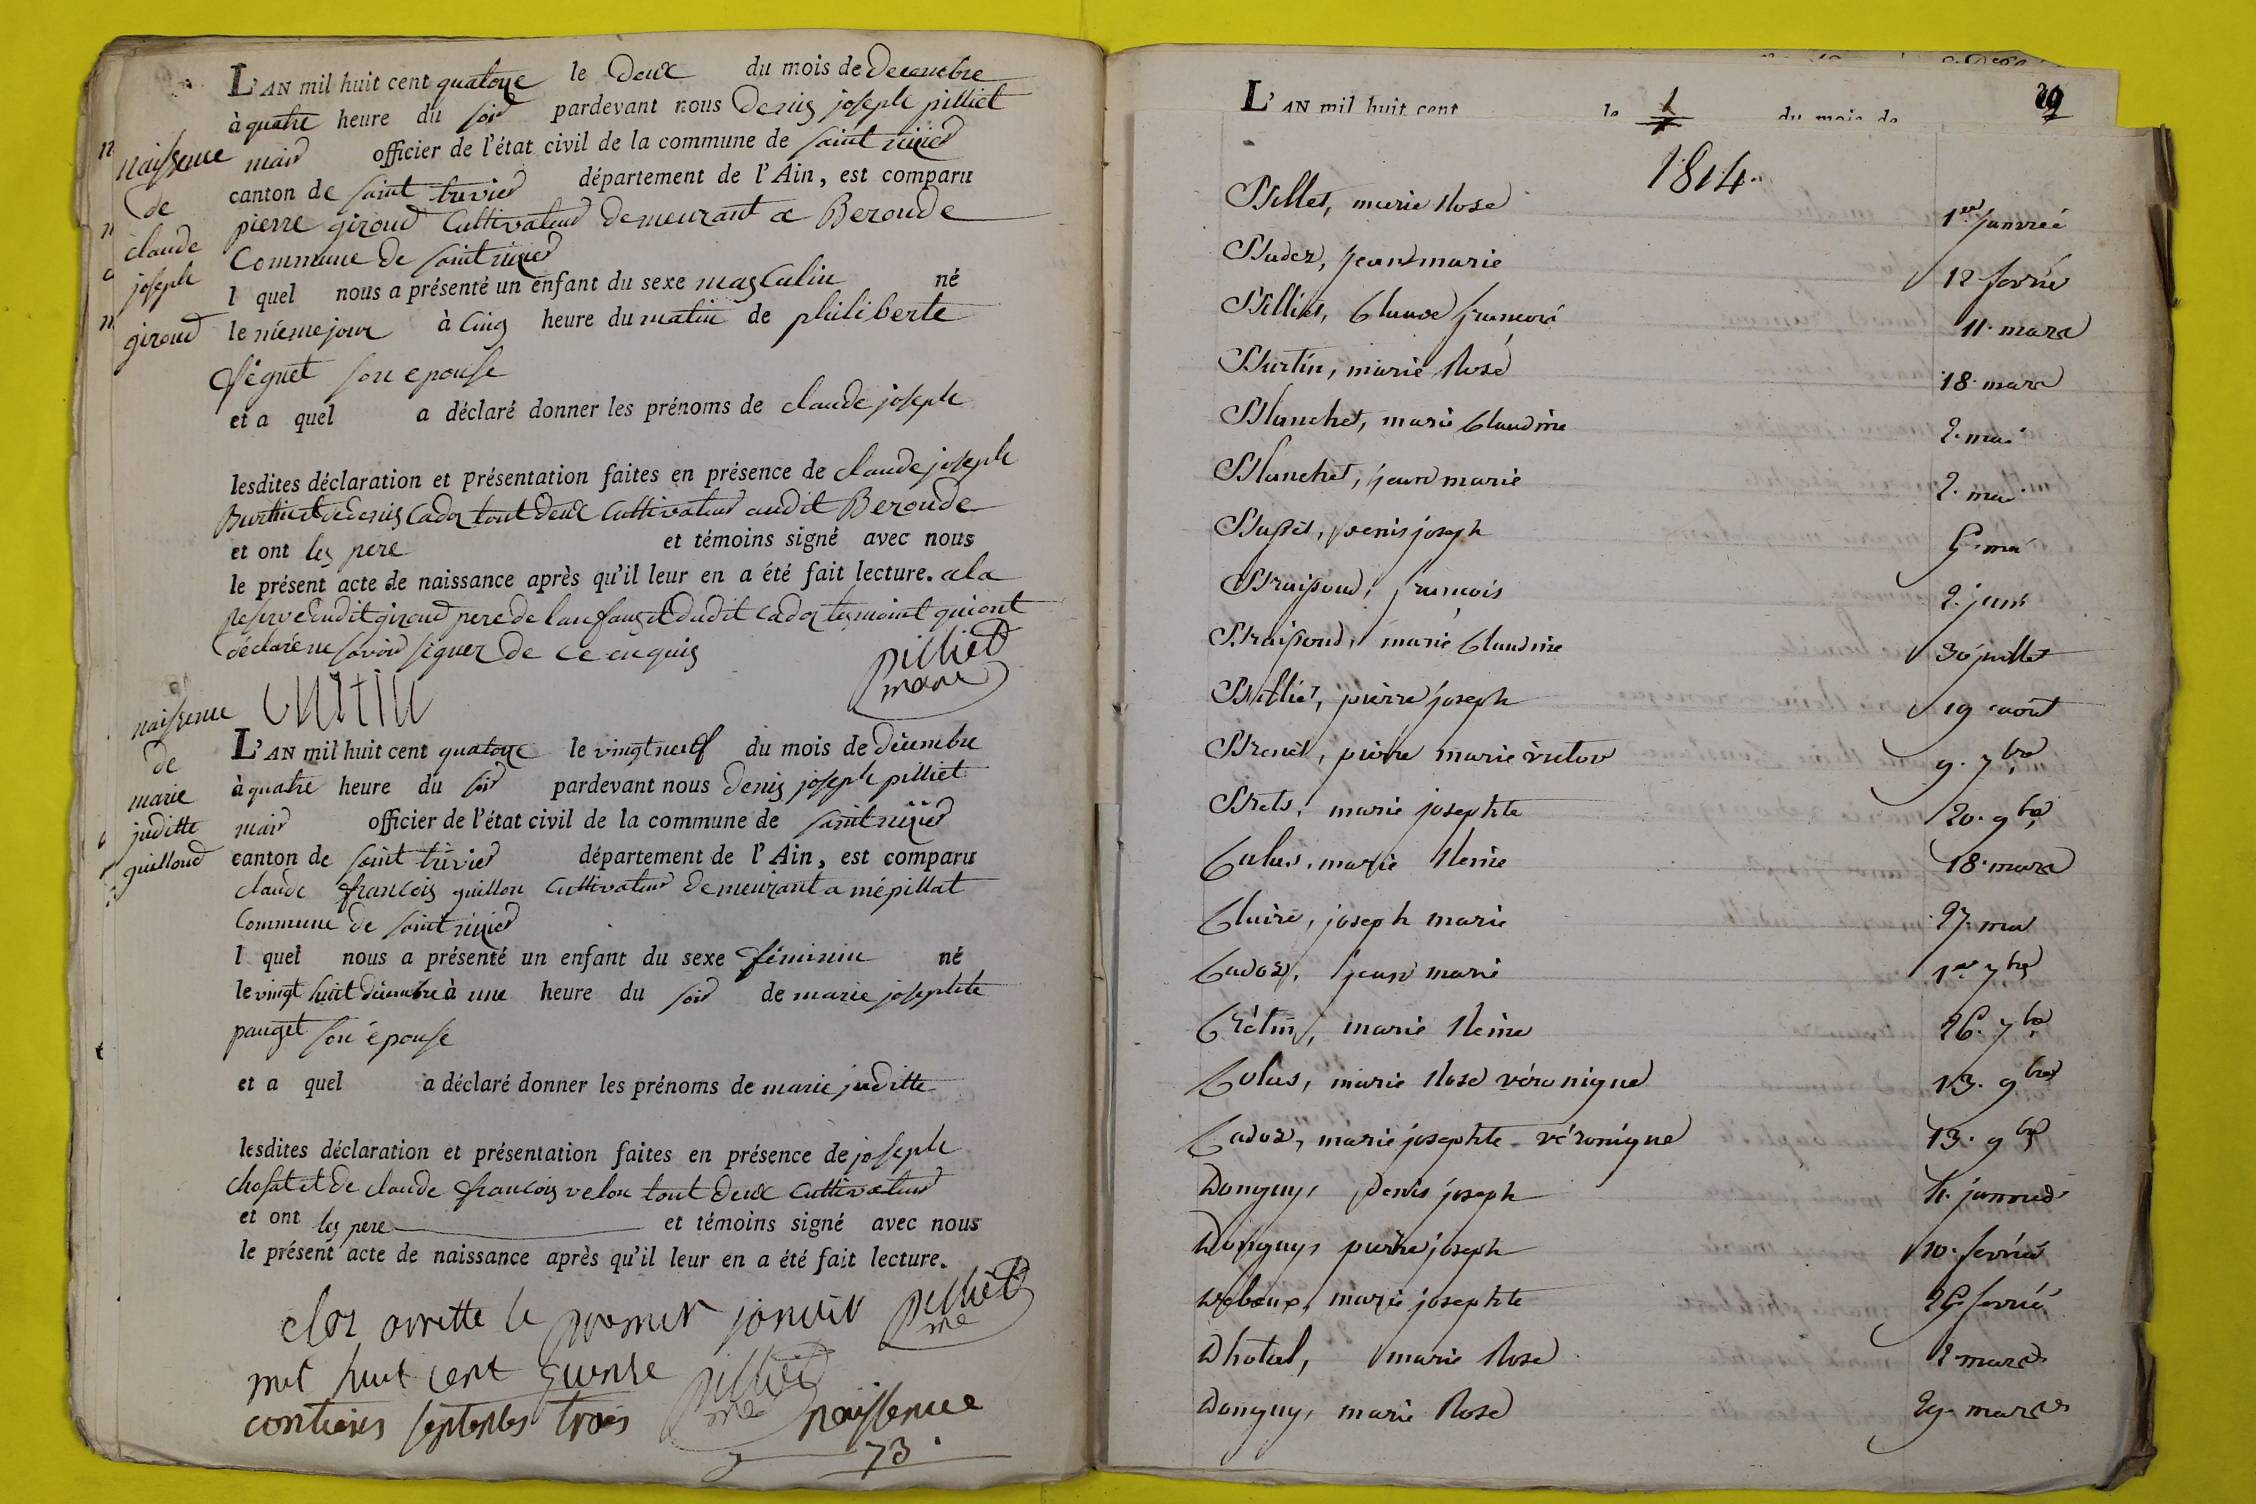 L'AN mil huit cent quatorze le deux du mois de decembre
à quatre heure du soir pardevant nous denis joseph pilliet
mair officier de l'état civil de la commune de saint nizier
canton de saint trivier département de l'Ain, est comparu
pierre giroud Cultivateur demeurant a Beroude
Commune de saint nizier
l quel nous a présenté un enfant du sexe masCulin né
le même jour à Cinq heure du matin de philiberte
son epouse
et a quel a déclaré donner les prénoms de claude joseph
lesdites déclaration et présentation faites en présence de claude joseph
Burtin et de denis Cadoz tout deux Cultivateur audit Beroude
et ont les pere et témoins signé avec nous
le présent acte de naissance après qu'il leur en a été fait lecture. a la
reserve dudit giroud pere de lanfans et dudit Cadoz temoint qui ont
déclaré ne savoir signer de ce enquis
pilliet
maire
naissence
de
claude
joseph
giroud
naissence
de
marie
juditte
guilloud
L'AN mil huit cent quatorze le vingt neuf du mois de décembre
à quatre heure du soir pardevant nous denis joseph pilliet
mair officier de l'état civil de la commune de saint nizier
canton de saint trivier département de l'Ain, est comparu
claude francois guillon Cultivateur demeurant a mépillat
Commune de saint nizier
l quel nous a présenté un enfant du sexe féminin né
le vingt huit décembre à une heure du soir de marie josephte
pauget son épouse
et a quel a déclaré donner les prénoms de marie juditte
lesdites déclaration et présentation faites en présence de joseph
chosat et de claude francois velon tout deux Cultivateur
et ont les pere et témoins signé avec nous
le présent acte de naissance après qu'il leur en a été fait lecture.
clos arrette le premier janvier pilliet
me
mil huit cent quinse pilliet
me
naissence
73
L'AN mil huit cent le 1 du mois de
1814.
Billet, marie Rose 1er janvié
Buder, jean marie 12 fevrié
Billiet, Claude francois 11. mars
Burtin, marie Rose 18. mars
Blanchet, marie Claudine 2. mai
Blanchet, jean marie 2. mai
denis joseph 5. mai
françois 2. juin
marie Claudine 30 juillet
Billiet, pierre joseph 19 aout
pierre marie victor 9. 7bre
marie josephte 20. 9bre
marie Reine 18. mars
Claire, joseph marie 27. mai
Cadoz, jean marie 1er 7bre
Crétin, marie Reine 26. 7bre
Colas, marie Rose véronique 13. 9bre
Cadoz, marie josephte véronique 13. 9bre
Donguy, denis joseph
Donguy, pierre joseph 10. fevrié
marie josephte 25 fevrié
Dhotel, marie Rose 2. mars
Donguy, marie Rose 29. mars